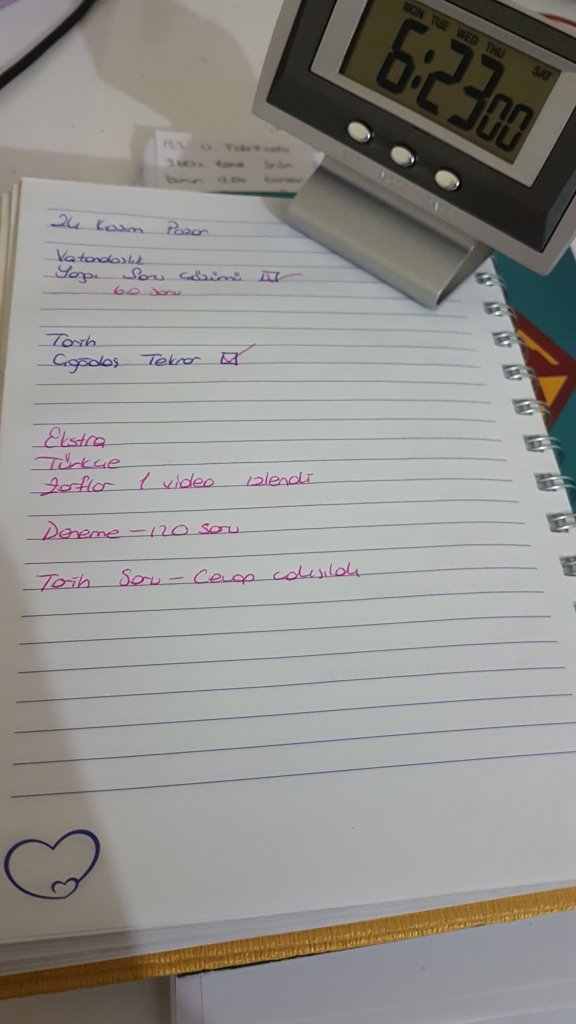 MON TUE WED THU SAT
6:23 00
24 Kasım Pazar
Vatandaşlık
Yargı Soru Çözümü
60 soru
Tarih
Çağdaş Tekrar
Ekstra
Türkçe
Zarflar 1 video izlendi
Deneme - 120 soru
Tarih Soru - Cevap çalışıldı